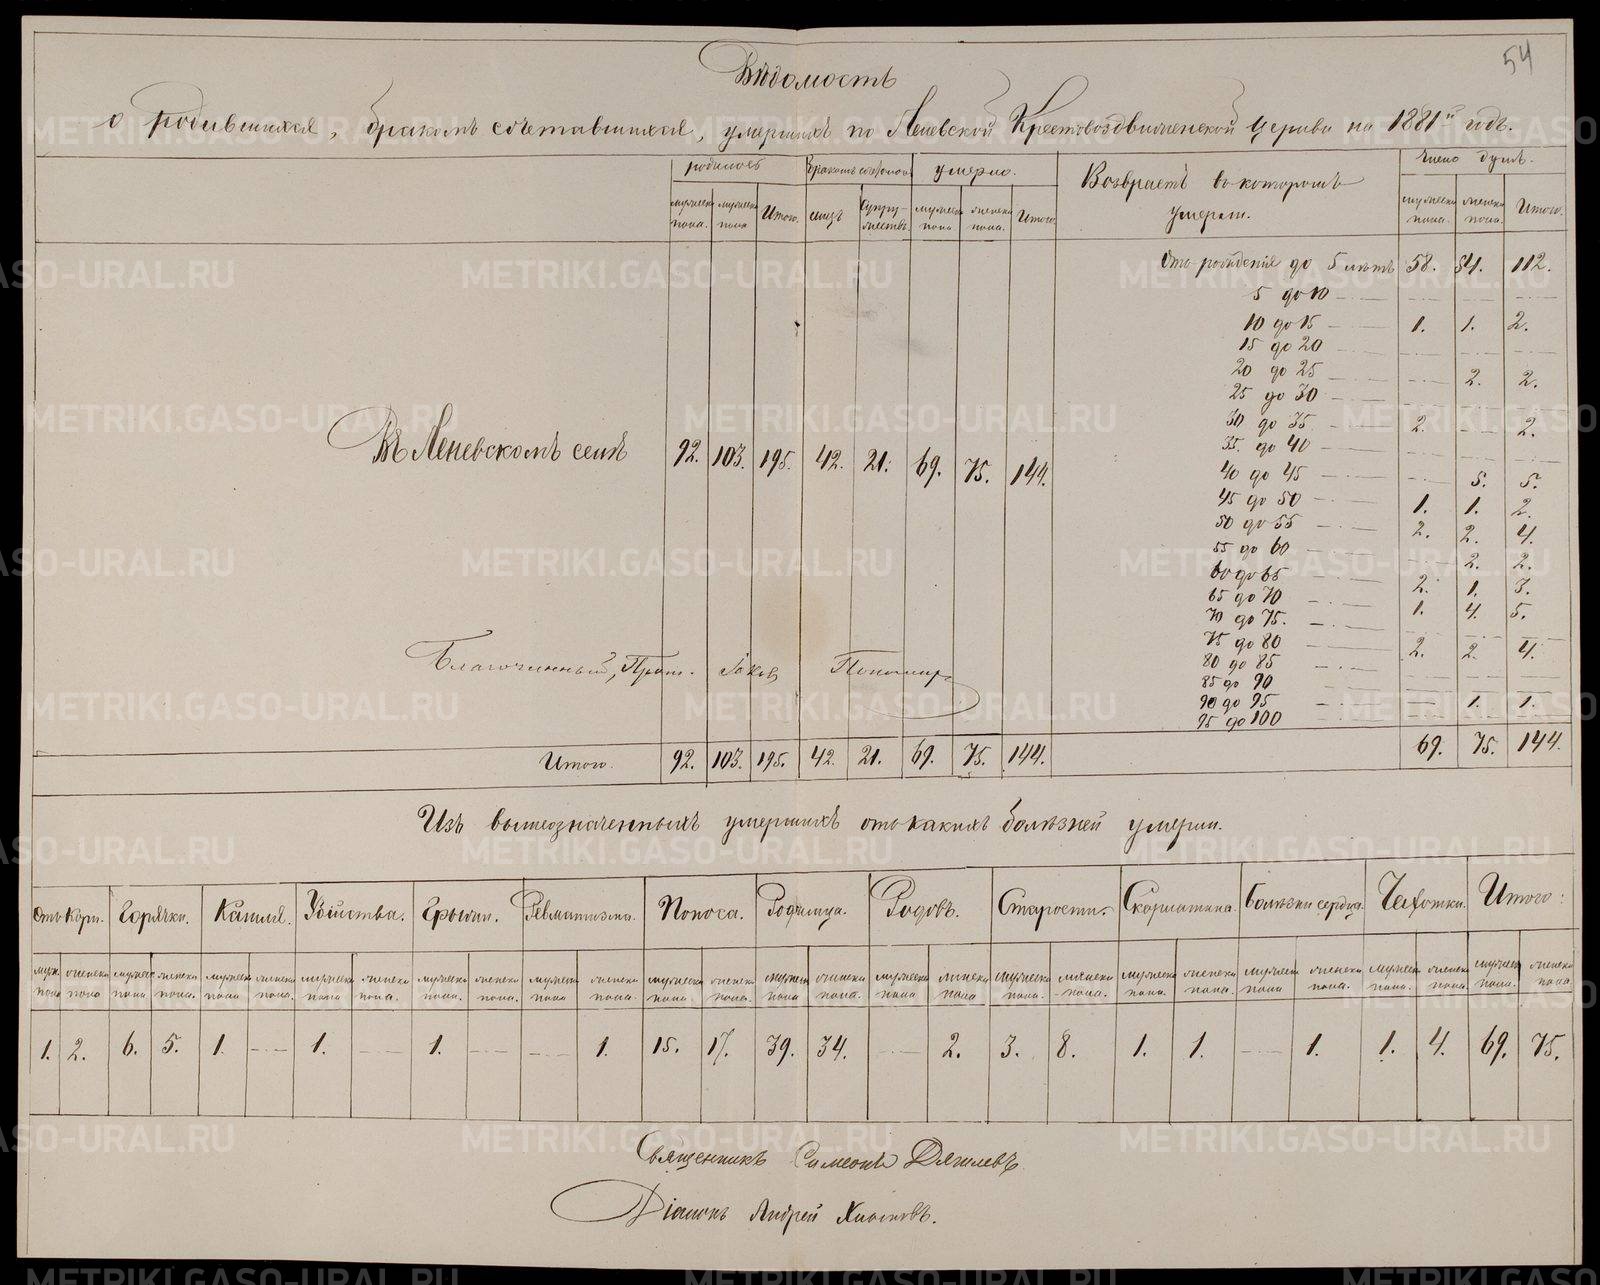 54
Вѣдомость
о родившихся, бракомъ сочетавшихся, умершихъ по Леневской Крестовоздвиженской церкви на 1881й годъ.
родилось бракомъ сочетал. умерло. Возврастъ въ которомъ число душъ.
мужеска пола. мужеска пола Итого. лицъ супружествъ. мужеска пола женска пола. Итого. умерли. мужеска пола. женска пола. Итого.
Отъ рожденія до 5 лѣтъ 58. 54. 112.
5 до 10
10 до 15 1. 1. 2.
15 до 20
20 до 25 2. 2.
25 до 30
30 до 35 2. 2.
35 до 40
Въ Леневскомъ селѣ 92. 103. 195. 42. 21. 69. 75. 144.
40 до 45 5. 5.
45 до 50 1. 1. 2.
50 до 55 2. 2. 4.
55 до 60 2. 2.
60 до 65 2. 1. 3.
65 до 70 1. 4. 5.
70 до 75.
75 до 80 2. 2. 4.
Благочинный, Прот. Іаковъ Пономар
80 до 85
85 до 90
90 до 95 1. 1.
95 до 100
Итого. 92. 103. 195. 42. 21. 69. 75. 144. 69. 75. 144.
Изъ вышеозначенныхъ умершихъ отъ какихъ болѣзней умерли.
Отъ Кори. Горячки. Кашля. Убійства. Грыжи. Ревматизма. Поноса. Родимца. Родовъ. Старости. Скарлатина. Болѣзни сердца. Чахотки. Итого:
муж. пола женска пола мужеска пола женска пола. мужеска пола женска пола. мужеска пола женска пола. мужеска пола. женска пола. мужеска пола женска пола. мужеска пола женска пола. мужеска пола женска пола. мужеска пола женска пола мужеска пола. женска пола. мужеска пола. женска пола. мужеска пола женска пола. мужеска пола. женска пола. мужеска пола. женска пола
1. 2. 6. 5. 1. 1. 1. 1. 15. 17. 39. 34. 2. 3. 8. 1. 1. 1. 1. 4. 69. 75.
Священникъ Симеонъ Дягилевъ
Діаконъ Андрей Хлыновъ.
METRIKI.GASO-URAL.RU